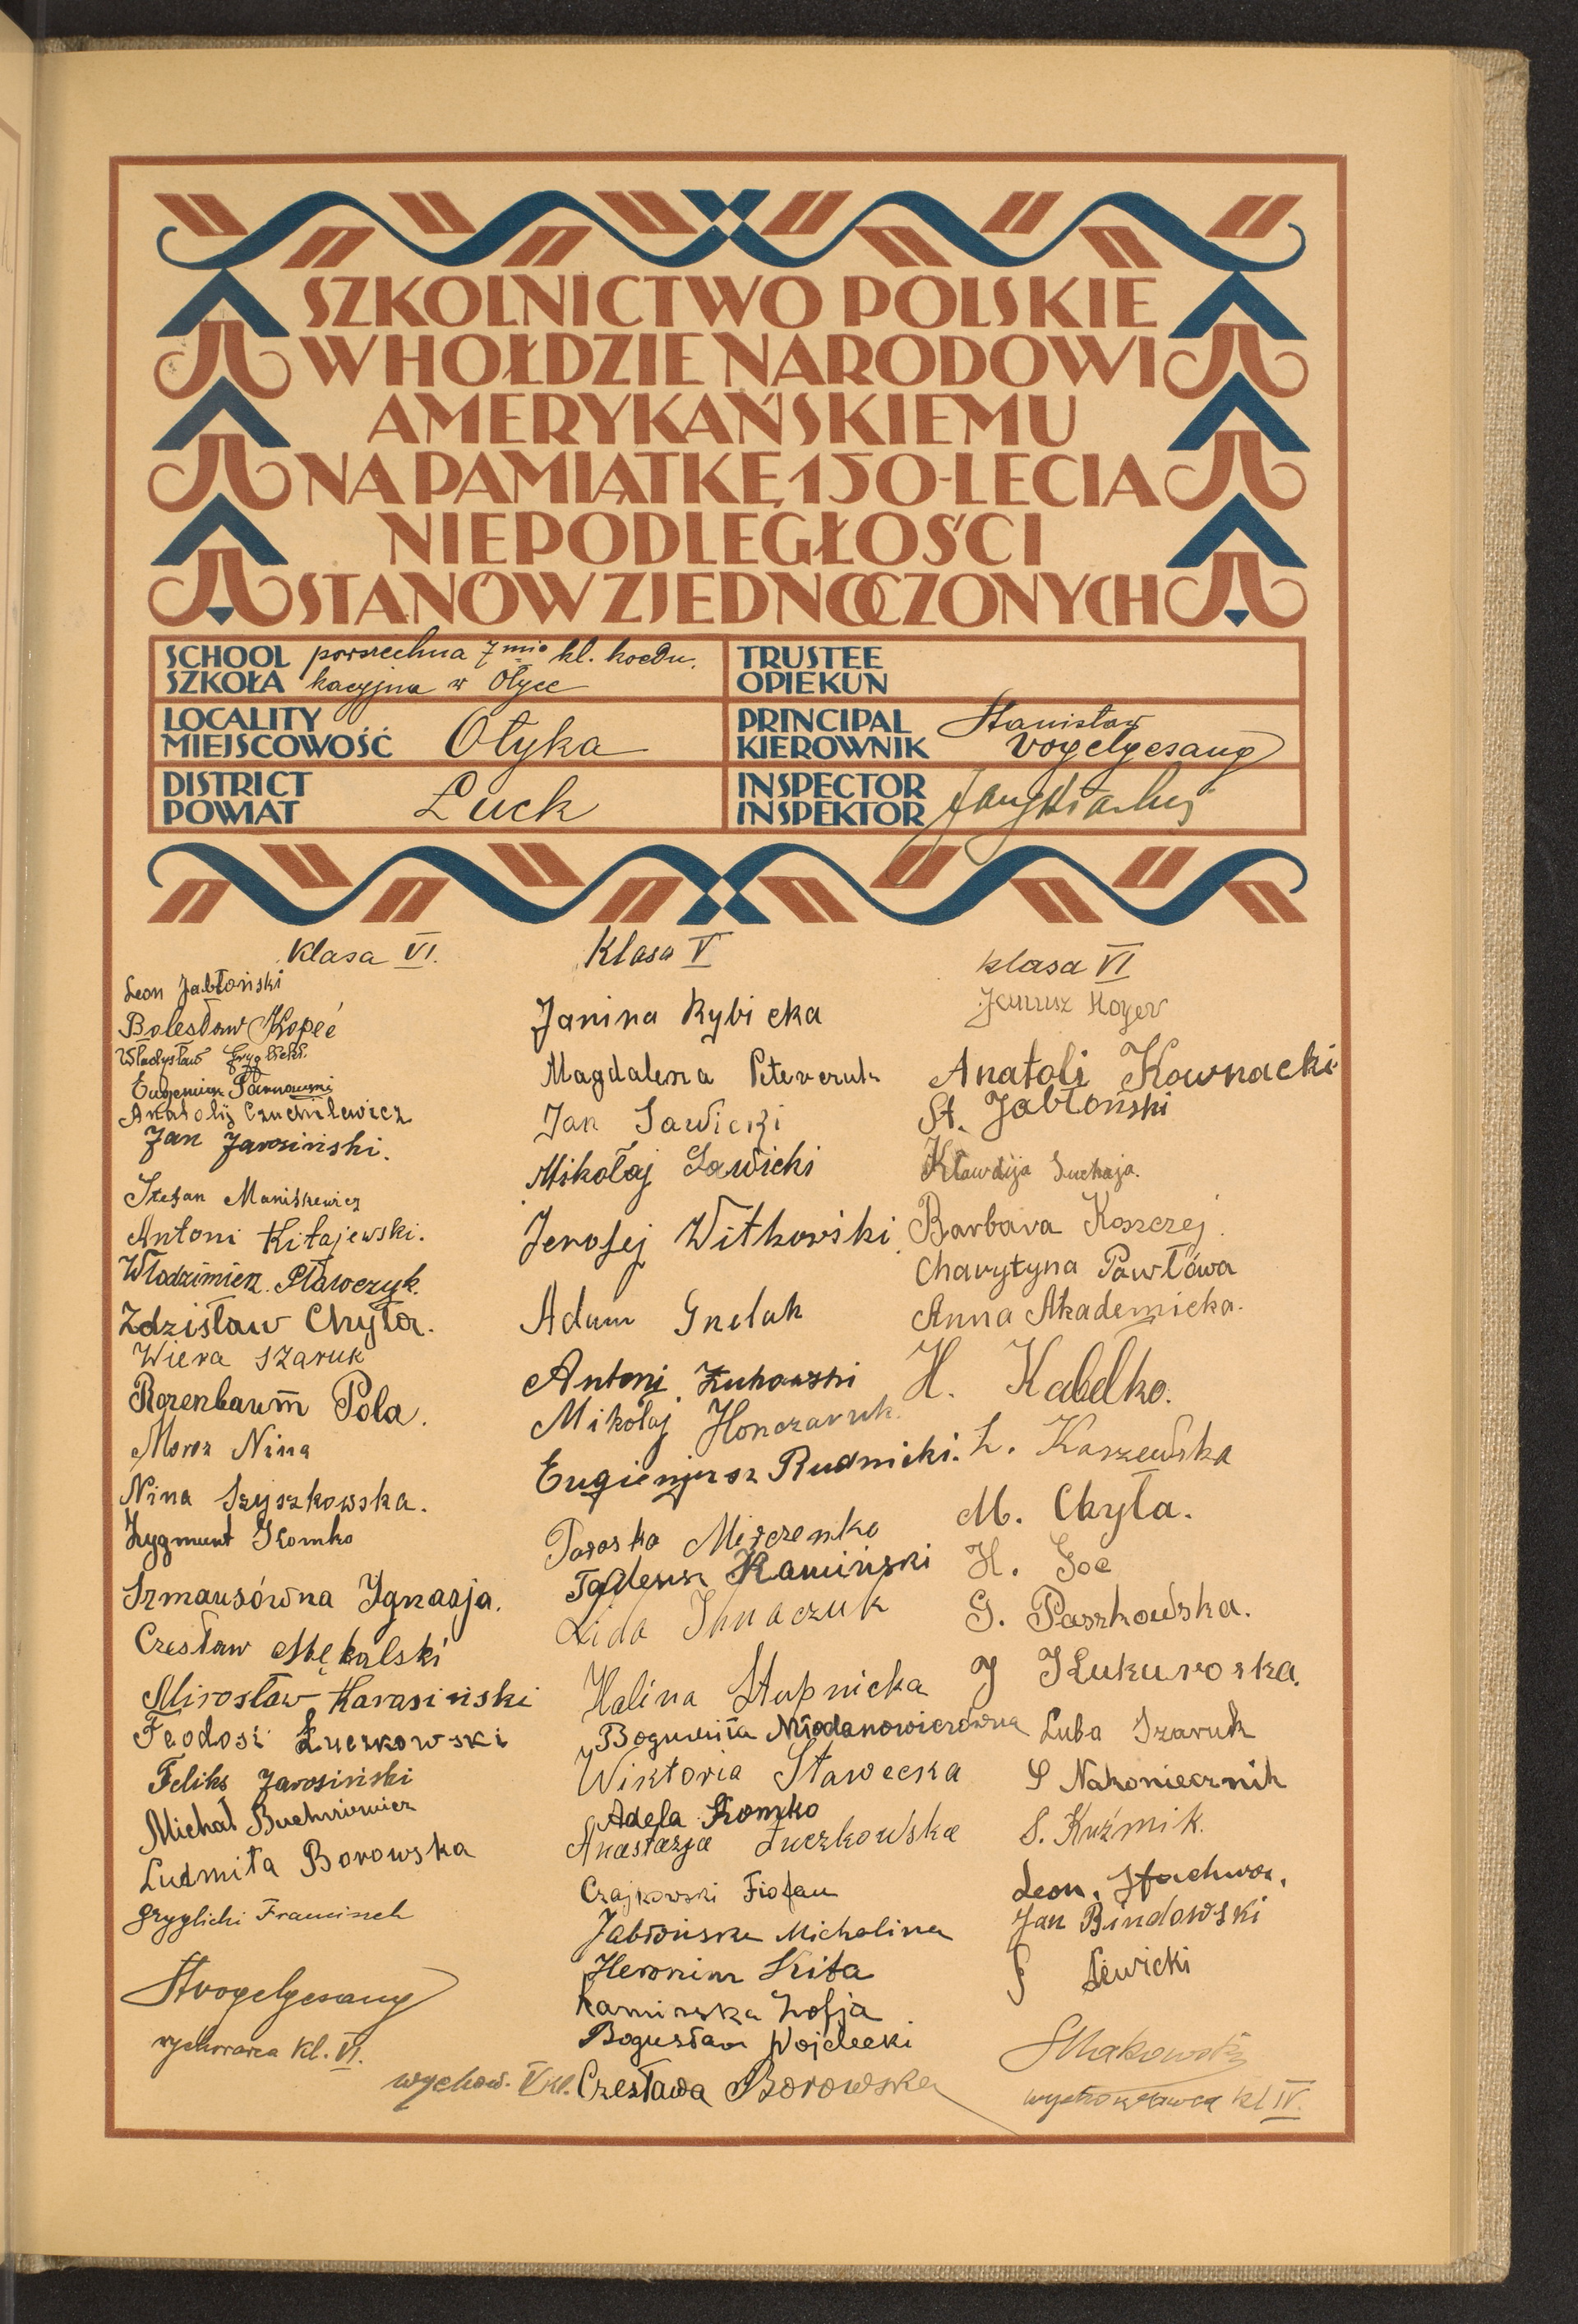 SZKOLNICTWO POLSKIE
W HOŁDZIE NARODOWI
AMERYKAŃSKIEMU
NA PAMIĄTKĘ 150-LECIA
NIEPODLEGŁOŚCI
STANÓW ZJEDNOCZONYCH
SCHOOL
SZKOŁA
powszechna 7mio kl. koedu.
kacyjna w Ołyce
TRUSTEE
OPIEKUN
LOCALITY
MIEJSCOWOŚĆ
Ołyka
PRINCIPAL
KIEROWNIK
Stanisław
Vogelgesang
DISTRICT
POWIAT
Łuck
INSPECTOR
INSPEKTOR
Klasa VI.
Leon Jabłoński
Bolesław Kopeć
Władysław Gryglicki.
Eugenjusz
Anatolij Czuchilewicz
Jan Jarosiński.
Stefan Maniszewicz
Antoni Kitajewski.
Włodzimierz Pławczyk.
Zdzisław Chyła.
Wiera Szaruk
Rozenbaum Pola.
Moroz Nina
Nina Szyszkowska.
Zygmunt Skomko
Szmausówna Ignacja.
Czesław Mękalski
Mirosław Karasiński
Feodosi Łuczkowski
Feliks Jarosiński
Michał Buchniewicz
Ludmiła Borowska
Gryglicki Franciszek
St Vogelgesang
wychowawca kl. VI.
Klasa V
Janina Rybicka
Magdalena Peterczuk
Jan Sawicki
Mikołaj Sawicki
Jerofej Witkowski
Adam Gnelak
Antoni Żukowski
Mikołaj Honczaruk.
Eugienjusz Rudnicki.
Paraska Mirczenko
Tadeusz Kamiński
Lida Ihnaczuk
Halina Stupnicka
Bogumiła Młodanowiczówna
Wiktoria Stawecka
Adela Skomko
Anastazja Łuczkowska
Czajkowski Fiofan
Jabłońska Michalina
Heronim Kita
Kamińska Zofja
Bogusław Wojdecki
wychow. V kl. Czesława Borowska
klasa VI
Janusz Hoyer
Anatoli Kownacki
St. Jabłoński
Kławdija Suchaja.
Barbara Koszczej.
Charytyna Pawłowa
Anna Akademicka.
H. Kabelko.
L. Kaszewska
M. Chyła.
H. Soe
G. Paszkowska.
J Kukuroska.
Luba Szaruk
S Nakoniecznik
S. Kuźmik.
Leon.
Jan Bindowski
S Lewicki
SMakowski
wychowawca kl IV.